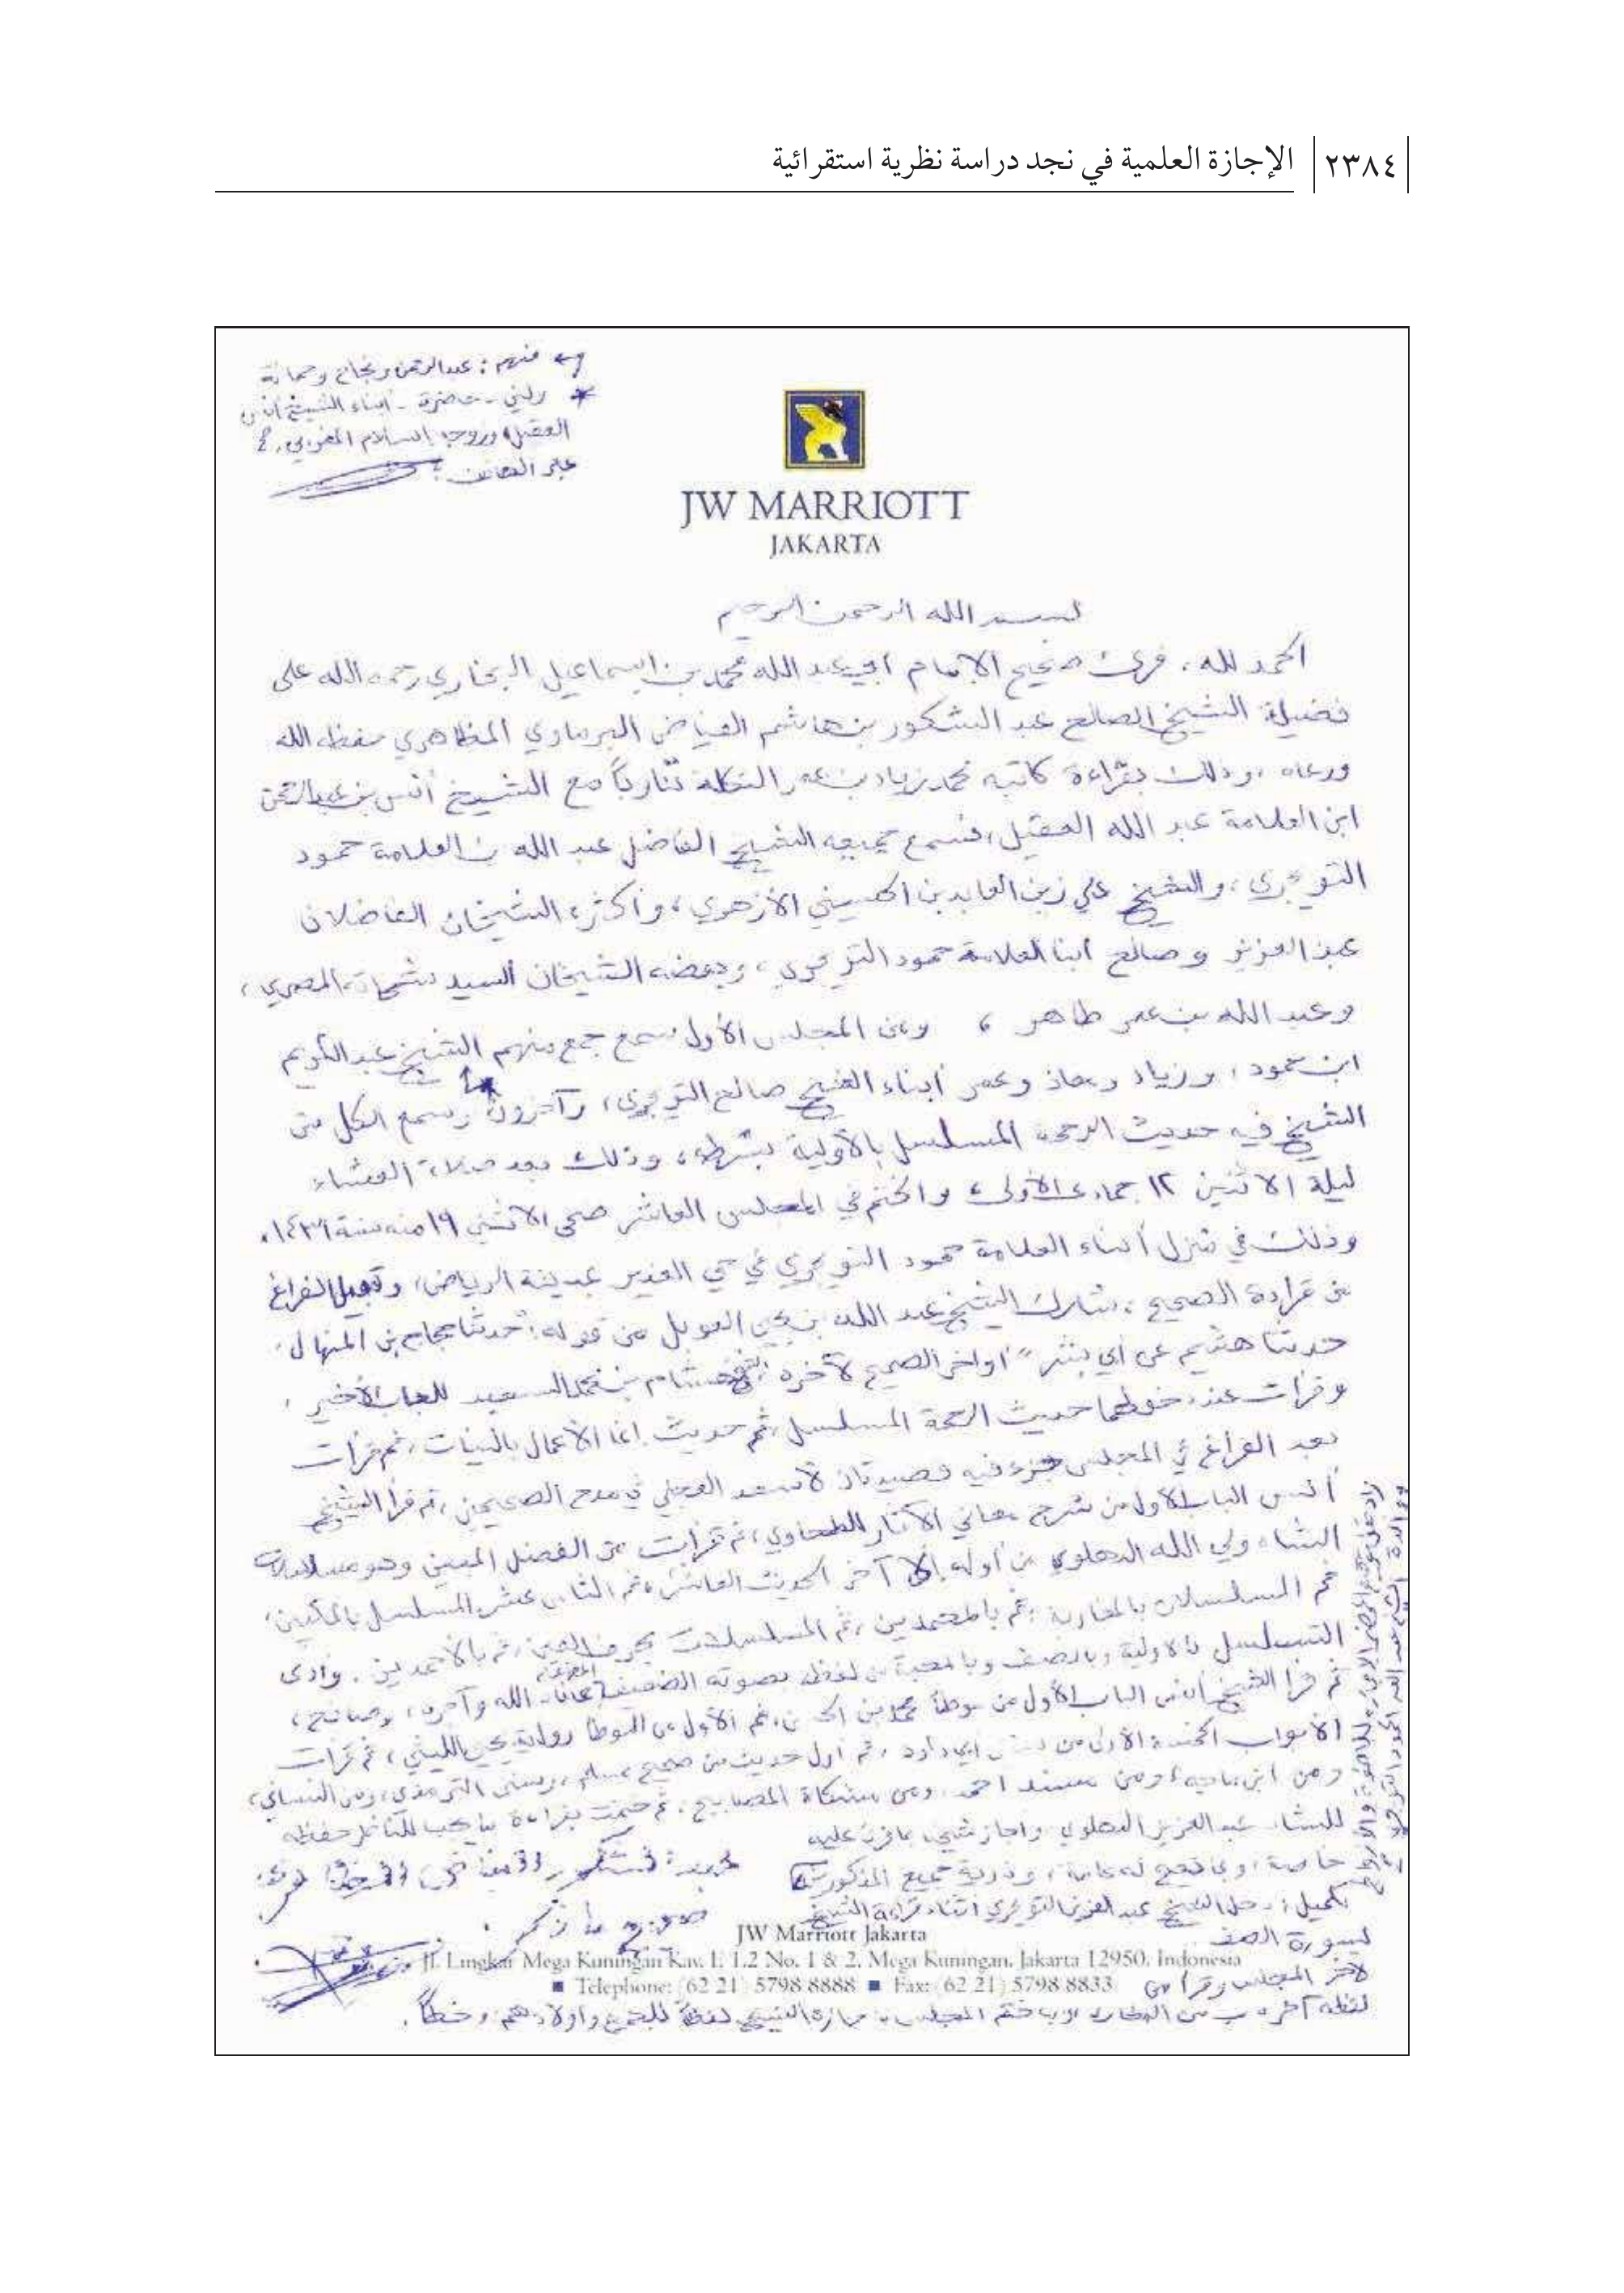 ٢٣٨٤ الإجازة العلمية في نجد دراسة نظرية استقرائية
منهم : عبد الرحمن ونجاح
حاضرة - أبناء الشيخ أنس
العقيل وزوجه السلام المغربي
عبر الهاتف
JW MARRIOTT
JAKARTA
بسم الله الرحمن الرحيم
الحمد لله، قرئ صحيح الإمام أبي عبد الله محمد بن إسماعيل البخاري رحمه الله على
فضيلة الشيخ الصالح عبد الشكور بن هاشم الفياض البرماوي المظاهري حفظه الله
ورعاه، وذلك بقراءة كاتبه محمد زياد بن عمر التكلة تناوباً مع الشيخ أنس بن عبد الرحمن
ابن العلامة عبد الله العقيل، فسمع جميعه الشيخ الفاضل عبد الله بن العلامة حمود
التويجري، والشيخ علي زين العابدين الحسيني الأزهري، وأكثره الشيخان الفاضلان
عبد العزيز وصالح ابنا العلامة حمود التويجري، وبعضه الشيخان السيد شحاتة المصري،
وعبد الله بن عمر طاهر، ومن المجلس الأول سمع جمع منهم الشيخ عبد الكريم
ابن حمود، وزياد ومعاذ وعمر أبناء الشيخ صالح التويجري، وآخرون، وسمع الكل من
الشيخ فيه حديث الرحمة المسلسل بالأولية بشرطه، وذلك بعد صلاة العشاء
ليلة الاثنين ١٢ جمادى الأولى، والختم في المجلس العاشر ضحى الاثنين ١٩ منه سنة ١٤٣٦،
وذلك في منزل أبناء العلامة حمود التويجري في حي الغدير بمدينة الرياض، وقبيل الفراغ
من قراءة الصحيح شارك الشيخ عبد الله بن يحيى العوبل من قوله: "حدثنا حجاج بن المنهال،
حدثنا هشيم عن أبي بشر" أواخر الصحيح لآخره هشام بن محمد السعيد للباب الأخير،
وقرأت عند حديث الرحمة المسلسل، ثم حديث إنما الأعمال بالنيات، ثم قرأت
بعد الفراغ في المجلس جزء فيه قصيدتان لأسعد العجلي في مدح الصحيحين، ثم قرأ الشيخ
أنس الباب الأول من شرح معاني الآثار للطحاوي، ثم قرأت من الفضل المبين وهو مسلسلات
الشاه ولي الله الدهلوي من أوله إلى آخر الحديث العاشر، ثم الثامن عشر المسلسل بالمكيين،
ثم المسلسلات بالمغاربة، ثم بالمعتمدين، ثم المسلسلات بحرف العين، ثم بالأحمدين. وأدى
التسلسل بالأولية وبالضيف وبالمحبة من لفظه بصوته الضعيف الله وآجره، وصافح،
ثم قرأ الشيخ أنس الباب الأول من موطأ محمد بن الحسن، ثم الأول من الموطأ رواية يحيى الليثي، ثم قرأت
الأبواب الخمسة الأولى من سنن أبي داود، ثم أول حديث من صحيح مسلم، وسنن الترمذي، ومن النسائي،
ومن ابن ماجه، ومن مسند أحمد، ومن مشكاة المصابيح، ثم ختمت بقراءة ما يجب للناظر حفظه
للشاه عبد العزيز الدهلوي، وأجاز شيخنا ما قرئ عليه
خاصة، وما تصح له عامة، وذرية جميع المذكورين
تكميل: دخل الشيخ عبد العزيز التويجري أثناء قراءة الشيخ
لسورة الصف
صحيح ما ذكر
JW Marriott Jakarta
Jl. Lingkar Mega Kuningan Kav. E 1.2 No. 1 & 2, Mega Kuningan, Jakarta 12950, Indonesia
■ Telephone: (62 21) 5798 8888 ■ Fax: (62 21) 5798 8833
لآخر المجلس